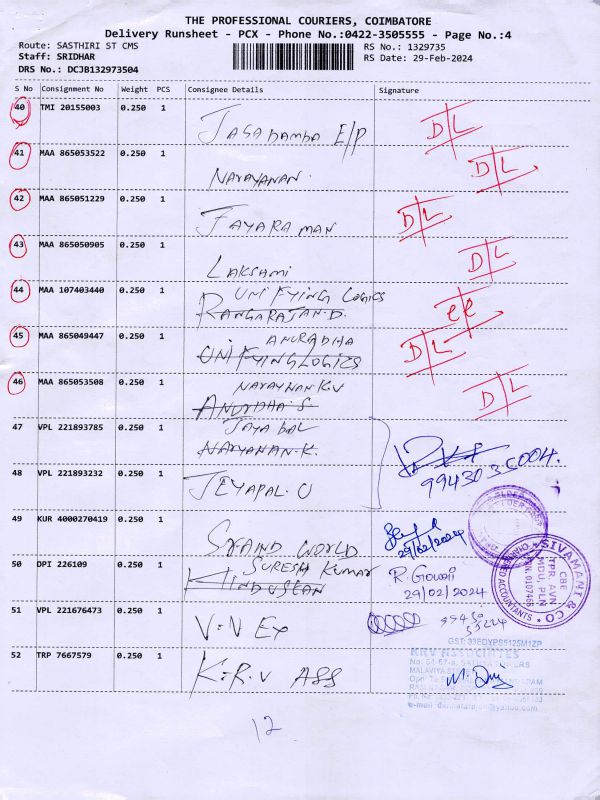 THE PROFESSIONAL COURIERS, COIMBATORE
Delivery Runsheet - PCX - Phone No.:0422-3505555 - Page No.:4
Route: SASTHIRI ST CMS
RS No.: 1329735
Staff: SRIDHAR
RS Date: 29-Feb-2024
DRS No.: DCJB132973504
S No Consignment No Weight PCS Consignee Details Signature
40 TMI 20155003 0.250 1
JAGADAMBA E/P D/L
41 MAA 865053522 0.250 1
NARAYANAN. D/L
42 MAA 865051229 0.250 1
JAYARAMAN D/L
43 MAA 865050905 0.250 1
LAKSAMI D/L
44 MAA 107403440 0.250 1
UNIFYING LOGICS
RANGARAJAN.D.
45 MAA 865049447 0.250 1
ANURADHA D/L
UNIFYING LOGICS
46 MAA 865053508 0.250 1
NARAYNAN K.V D/L
47 VPL 221893785 0.250 1
JAYABAL
NARYANAN.K.
99430 35004.
48 VPL 221893232 0.250 1
JEYAPAL.U
49 KUR 4000270419 0.250 1
29/02/2024
WORLD
50 DPI 226109 0.250 1
SURESH KUMAR
HINDUSTAN
R. Gowri
29/02/2024
SIVAMANI & CO
CBE
TPR, AVN
MDU, PLN
51 VPL 221676473 0.250 1
V.N EX
52 TRP 7667579 0.250 1
K.R.V ASS
GST: 33EDYPS5125M1ZP
KRV ASSOCIATES
12